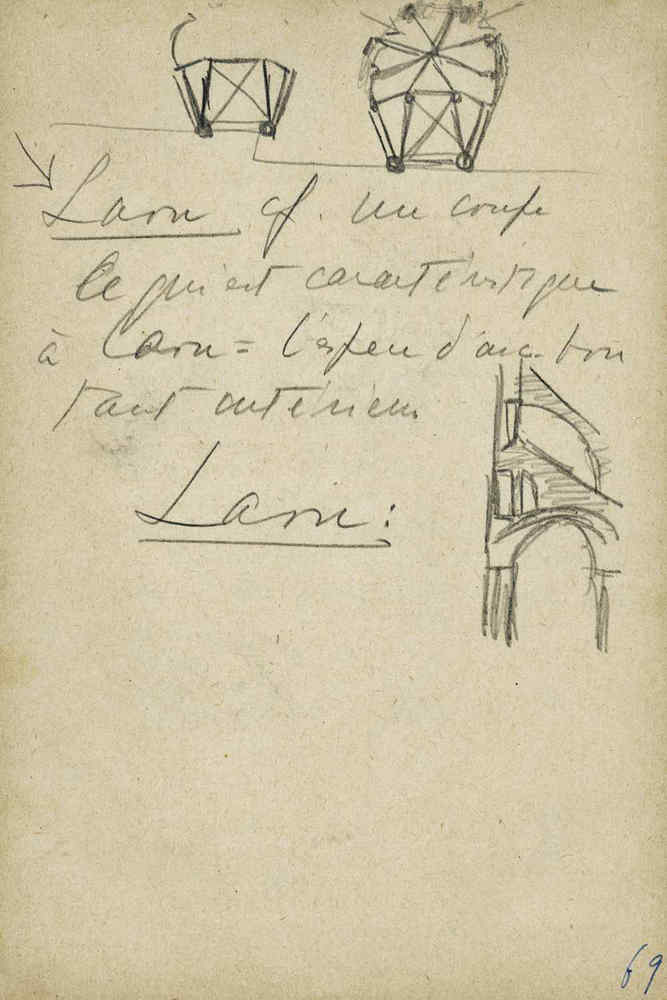 Laon cf. une coupe
Ce qui est caractéristique
à Laon = l'espece d'arc-bou
tant intérieur
Laon :
69